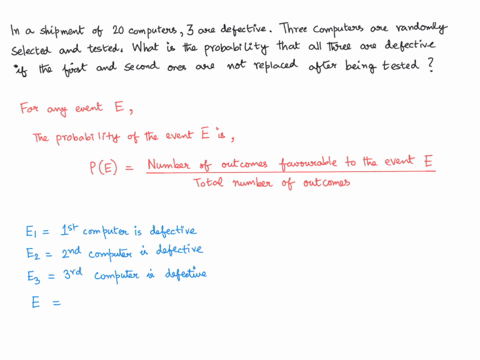 In a shipment of 20 computers, 3 are defective. Three computers are randomly
selected and tested. What is the probability that all three are defective
if the first and second ones are not replaced after being tested ?
For any event E,
The probability of the event E is,
P(E) = Number of outcomes favourable to the event E / Total number of outcomes
E1 = 1st computer is defective
E2 = 2nd computer is defective
E3 = 3rd computer is defective
E =